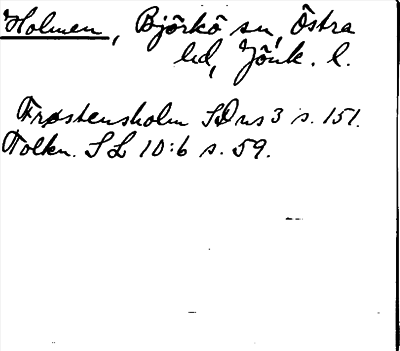 Holmen, Björkö sn, Östra
hd, Jönk. l.
Frostensholm SD ns 3 s. 151.
Tolkn. SL 10:6 s. 59.